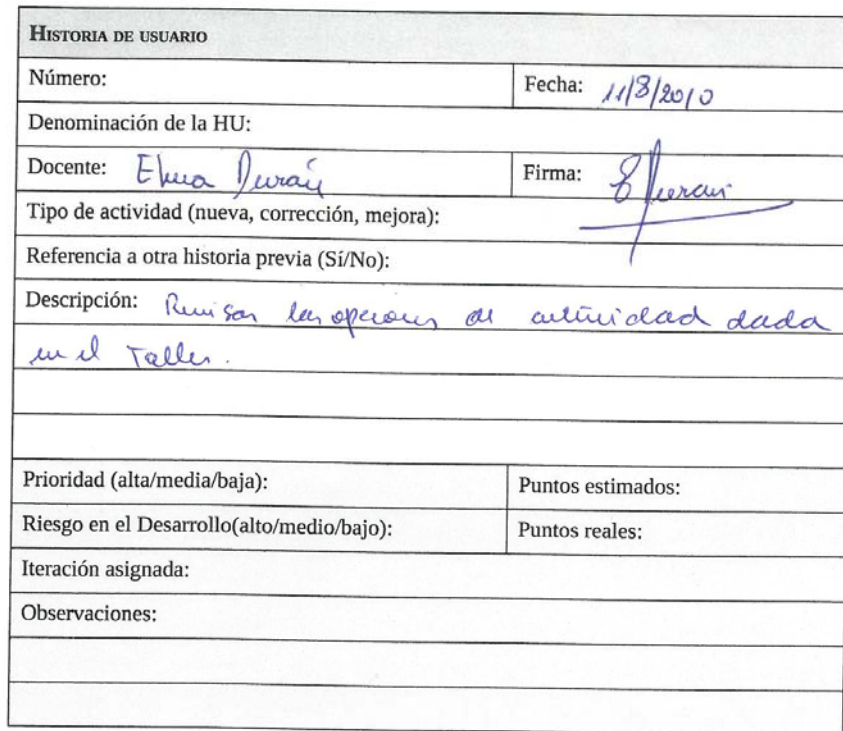 HISTORIA DE USUARIO
Número: Fecha: 11/8/2010
Denominación de la HU:
Docente: Elena Durán Firma: EDuran
Tipo de actividad (nueva, corrección, mejora):
Referencia a otra historia previa (Sí/No):
Descripción: Revisar las opciones de actividad dada
en el Taller.
Prioridad (alta/media/baja): Puntos estimados:
Riesgo en el Desarrollo(alto/medio/bajo): Puntos reales:
Iteración asignada:
Observaciones: